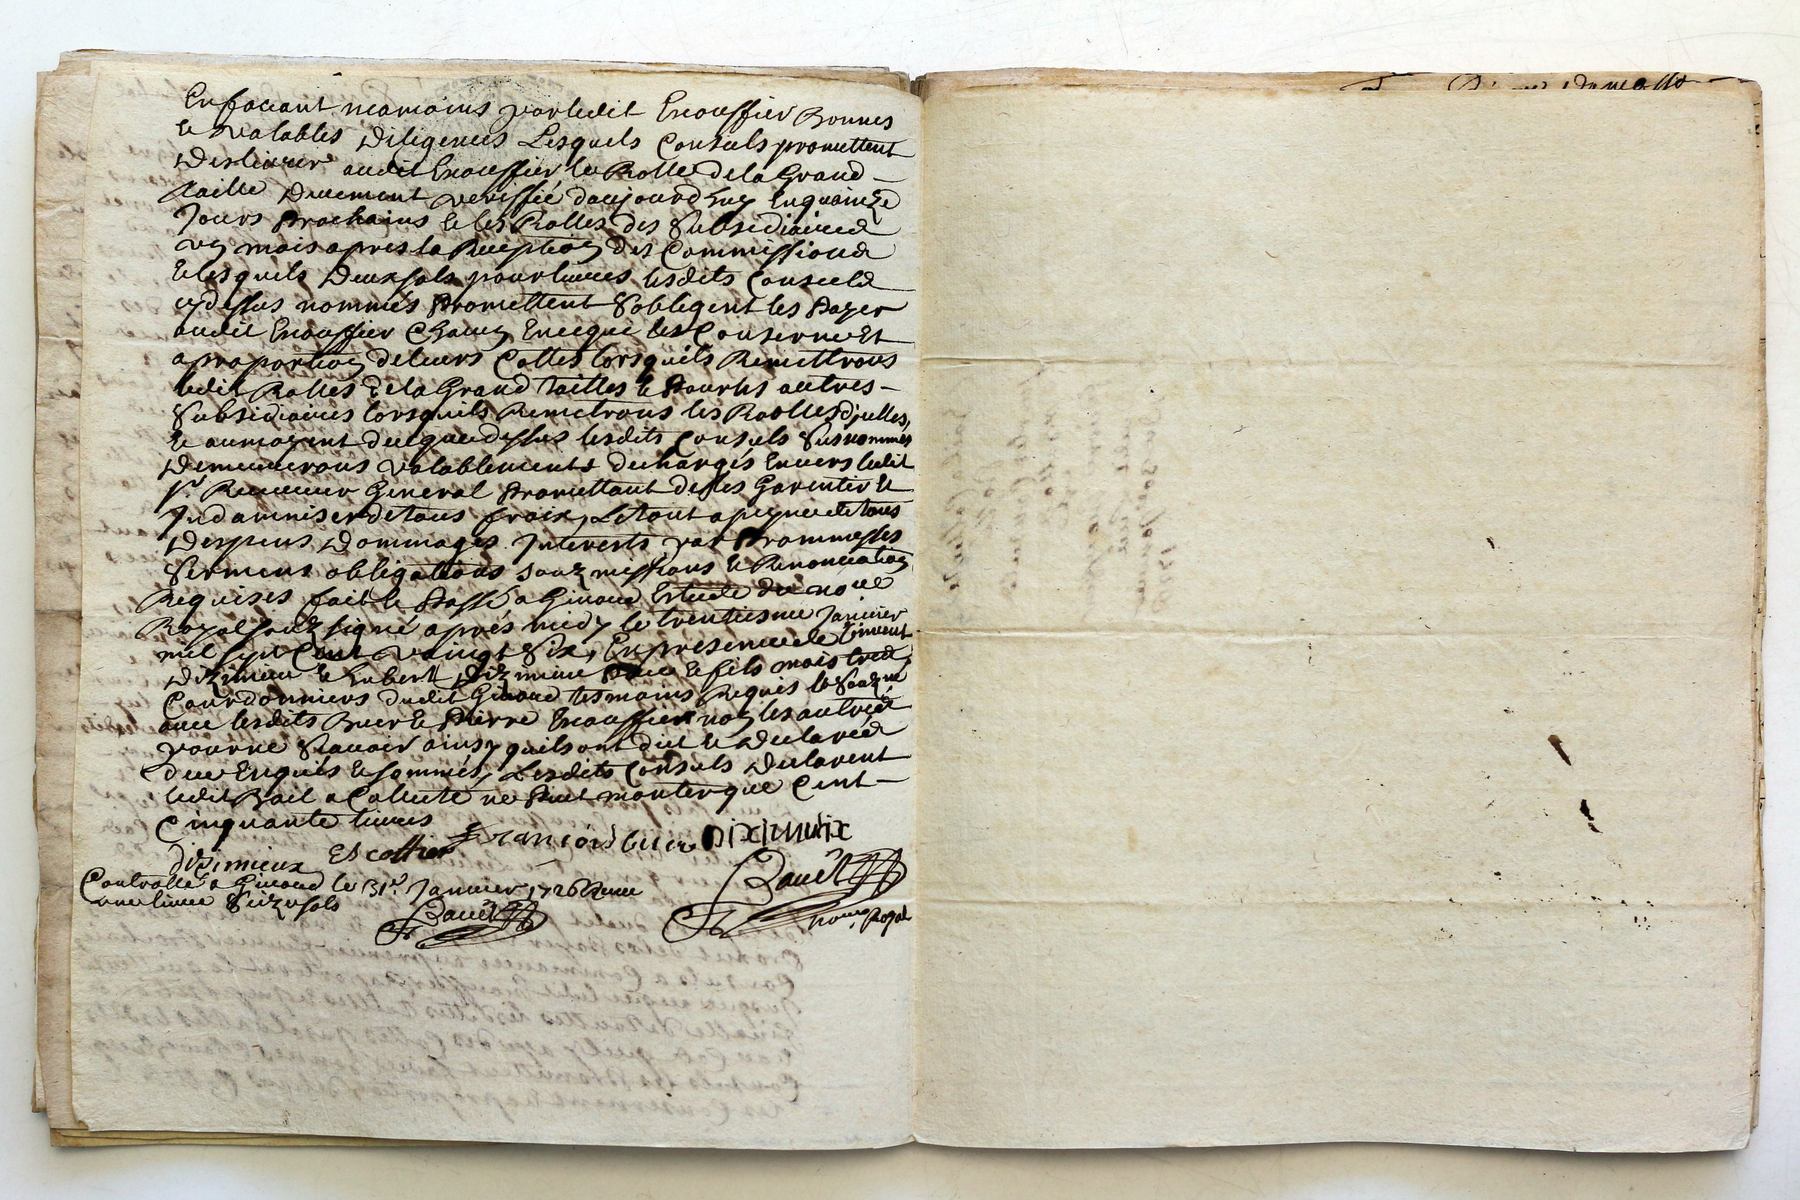 Enfaciant neamoins par ledit Encouffier Bonnes
le valables Diligences Lesquels Consuls promettent
Deslivrer audit Encouffier le Rolle de la Grand
Taille Duement veriffié daujourdhuy En quainze
Jours Prochains le les Rolles des Subsidiaires
vn mois apres la Reception des Commissions
Elesquels Deux sols pour livres lesdits Consuls
cydessus nommés Promettent Soblegent les Payer
audit Encouffier Chacun En ce qui les Conserne Et
a proportion de leurs Cottes lorsquils Remettrons
ledit Rolles de la Grand Tailles le Pour les autres
Subsidiaires lorsquils Remetrons les Roolles djcelles,
le aumoyent de ce que dessus lesdits Consuls Susnommés
Demeurerons valablements dechargés Envers ledit
Sr. Receveur General Promettant de les Garentir le
Indamniser de tous fraix, Le tout a peyne de tous
Despens Dommages Interests par Prommesses
Sermens obligations souz missions le Renonciation
Requises fait le Passé a Givord Estude du nore
Royal souz signé aprés midy le trentiesme Janvier
mil sept Cent vaingt Six, En presence de Vincent
Dizimieu le Hubert Dizimieu Pere le fils mais tres
Courdonniers dudit Givord tesmoins Requis le Souzne
avec lesdits Buer le Pierre Encouffier non les autres
pour ne Scavoir ainsy quils ont dict le Declarés
de ce Enquis le sommés, Lesdits Consuls Declarent
ledit Bail a Collecte ne Peut monter que Cent
Cinquante livres
Francois buer DIXIMIEIX
Dizimieux Escoffier
Controllé a Givord le 31e. Janvier 1726 Receu
une livre Seize sols
Baudt nore. Royal
Baudt